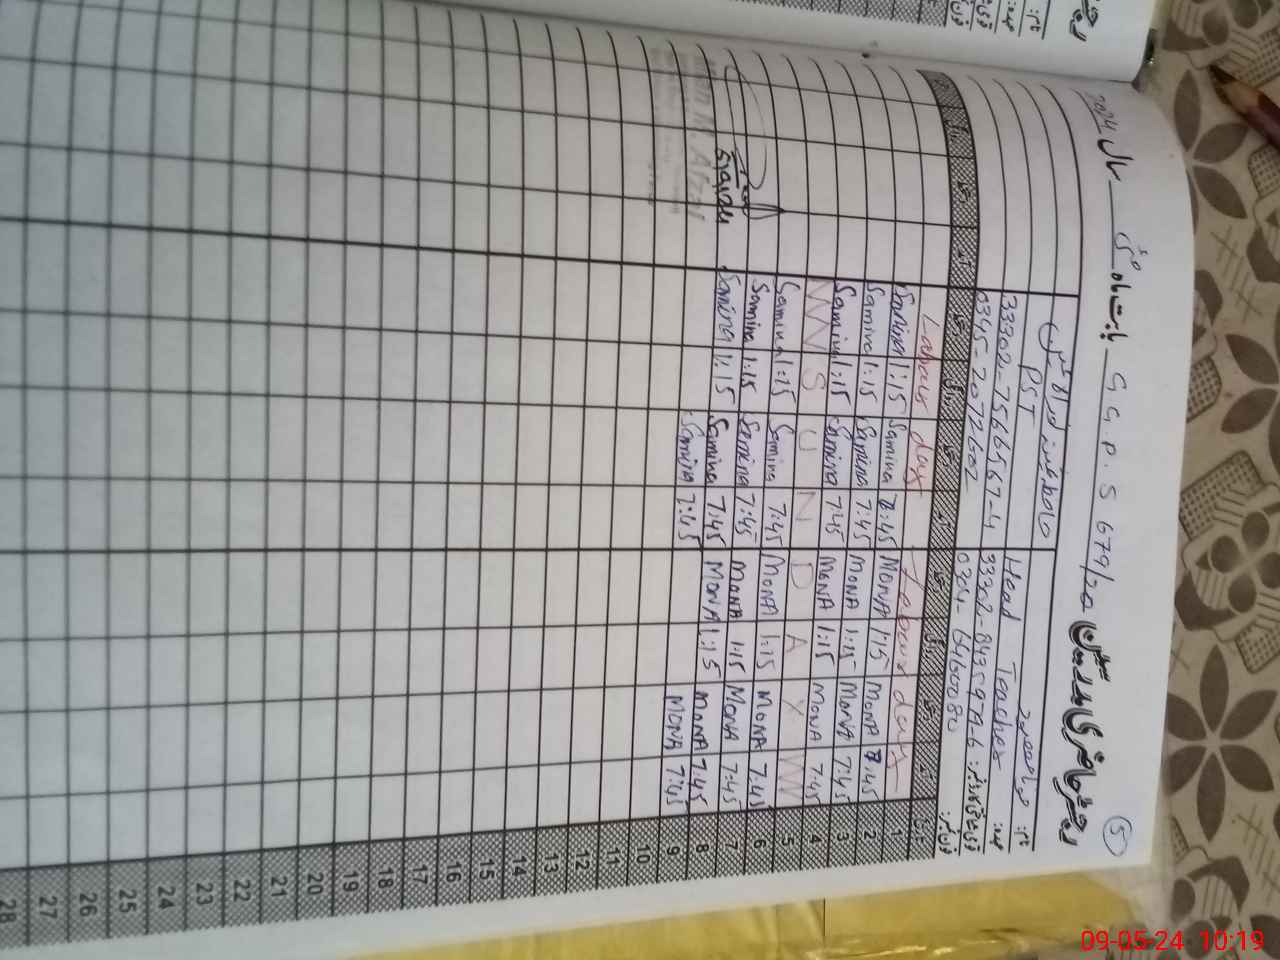 رجسٹر حاضری مدرسین
G.G.P.S 679/20 بابت ماہ مئی سال 2024
5
نام:
عہدہ: Head Teacher PST
قومی شناختی کارڈ نمبر: 33302-8435974-6 33302-7566567-4
فون نمبر: 0304-6460080 0345-2072602
تاریخ
1 Labour day Labour day
2 MONA 7:45 MONA 1:15 Samina 7:45 Samina 1:15
3 MONA 7:45 MONA 1:15 Samina 7:45 Samina 1:15
4 MONA 7:45 MONA 1:15 Samina 7:45 Samina 1:15
5 S U N D A Y
6 MONA 7:45 MONA 1:15 Samina 7:45 Samina 1:15
7 MONA 7:45 MONA 1:15 Samina 7:45 Samina 1:15
8 MONA 7:45 MONA 1:15 Samina 7:45 Samina 1:15
9 MONA 7:45 Samina 7:45
10
11
12
13
14
15
16
17
18
19
20
21
22
23
24
25
26
27
28
09-05-24 10:19